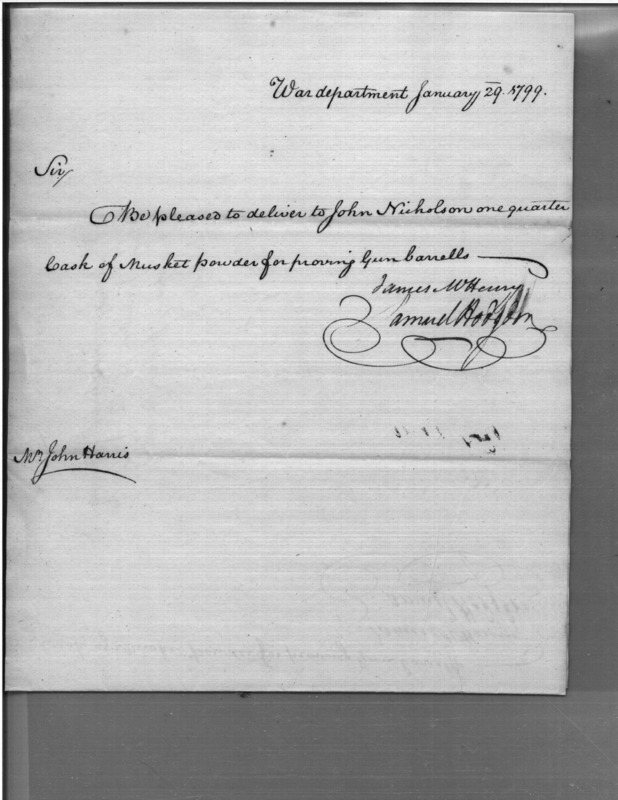 War department January 29. 1799.
Sir,
Be pleased to deliver to John Nicholson one quarter
Cask of Musket powder for proving Gun barrells
James McHenry
Samuel Hodgdon
Mr. John Harris